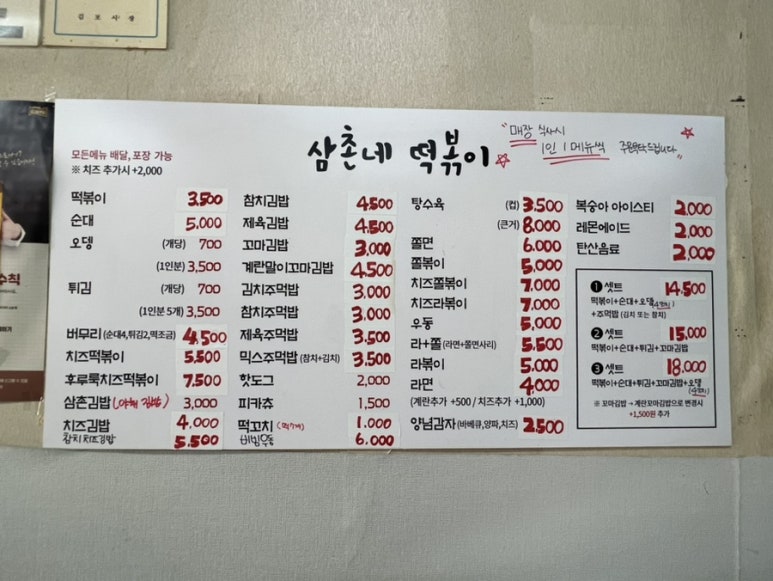 김포시장
삼촌네 떡볶이
"매장 식사시
1인 1메뉴씩 주문부탁드립니다"
모든메뉴 배달, 포장 가능
※ 치즈 추가시 +2,000
떡볶이 3.500
순대 5,000
오뎅 (개당) 700
(1인분) 3,500
튀김 (개당) 700
(1인분 5개) 3,500
버무리 (순대4, 튀김2, 떡조금) 4,500
치즈떡볶이 5.500
후루룩치즈떡볶이 7,500
삼촌김밥 (야채 김밥) 3,000
치즈김밥 4.000
참치치즈김밥 5.500
참치김밥 4,500
제육김밥 4,500
꼬마김밥 3,000
계란말이꼬마김밥 4,500
김치주먹밥 3,000
참치주먹밥 3,000
제육주먹밥 3,500
믹스주먹밥 (참치+김치) 3,500
핫도그 2,000
피카츄 1,500
떡꼬치 (떡7개) 1.000
비빔우동 6.000
탕수육 (컵) 3,500
(큰거) 8,000
쫄면 6.000
쫄볶이 5,000
치즈쫄볶이 7,000
치즈라볶이 7,000
우동 5,000
라+쫄 (라면+쫄면사리) 5,500
라볶이 5,000
라면 4,000
(계란추가 +500 / 치즈추가 +1,000)
양념감자 (바베큐,양파,치즈) 2,500
복숭아 아이스티 2,000
레몬에이드 2,000
탄산음료 2,000
❶ 셋트 14,500
떡볶이+순대+오뎅
+주먹밥 (김치 또는 참치)
❷ 셋트 15,000
떡볶이+순대+튀김+꼬마김밥
❸ 셋트 18,000
떡볶이+순대+튀김+꼬마김밥+오뎅
※ 꼬마김밥 → 계란꼬마김밥으로 변경시
+1,500원 추가
수칙